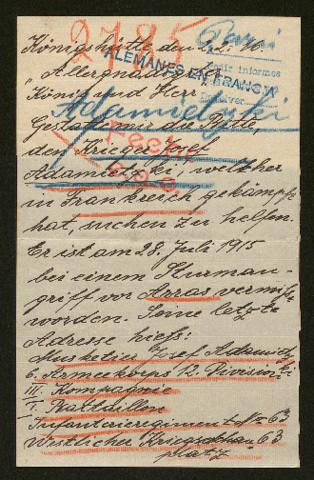 2795 Pari
Königshütte den 2.2. 16.
ALEMANES EN FRANCIA
Pedir informes
„Allergnädigster
König und Herr
Adamietzki
Gestatte mir die Bitte,
den Krieger Josef
Adamietzki, welcher
in Frankreich gekämpft
hat, suchen zu helfen.
Er ist am 28. Juli 1915
bei einem Sturman-
griff vor Arras vermißt
worden. Seine letzte
Adresse hieß:
Musketier Josef Adamietz-
ki
6. Armeekorps 12. Division
III. Kompagnie
I. Battaillon
Infantarieregiment No 63
63
Westlicher Kriegsschau
platz